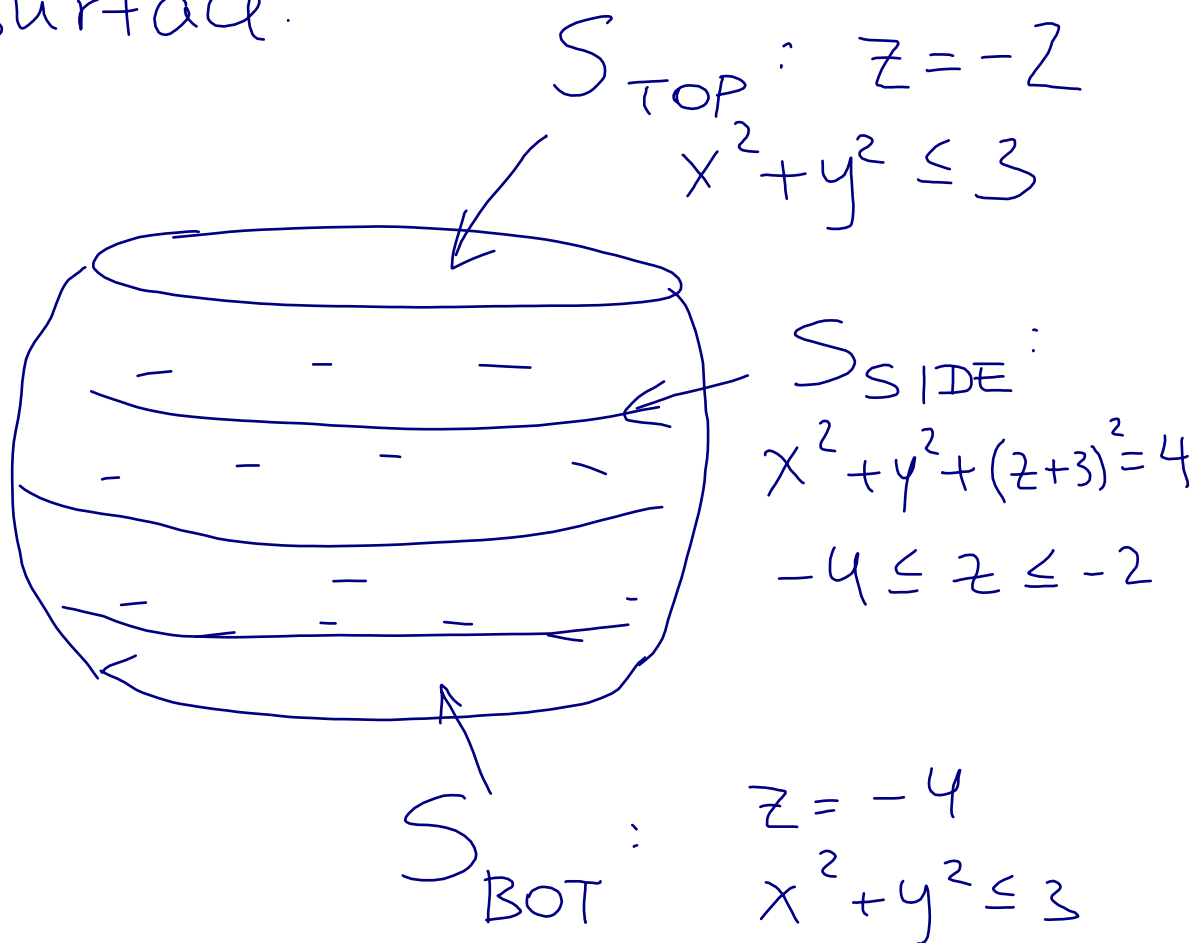 surface.
S_TOP : z = -2
x² + y² ≤ 3
S_SIDE :
x² + y² + (z+3)² = 4
-4 ≤ z ≤ -2
S_BOT : z = -4
x² + y² ≤ 3